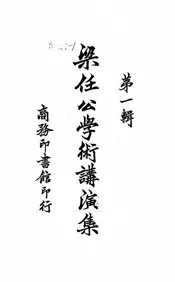 第一輯
梁任公學術講演集
商務印書館印行